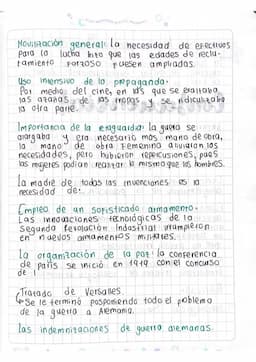 Movilización general: La necesidad de efectivos
para la lucha hizo que las edades de reclu-
tamiento forzoso fuesen ampliadas.
Uso intensivo de la propaganda.
Por medio del cine, en las que se exaltaba
las azañas de las tropas y se ridiculizaba
la otra parte.
Importancia de la retaguardia: la guerra se
alargaba y era necesario mas mano de obra,
la mano de obra Femenina aliviaron las
necesidades, pero hubieron repercusiones, pues
las mujeres podian realizar lo mismo que los hombres.
La madre de todas las invenciones es la
necesidad de:
Empleo de un sofisticado armamento.
Las innovaciones tecnológicas de la
Segunda Revolución Industrial irrumpieron
en nuevos armamentos militares.
La organización de la paz: la conferencia
de París se inició en 1919 con el concurso
de
Tratado de Versalles.
Se le terminó posponiendo todo el problema
de la guerra a Alemania.
Las indemnizaciones de guerra alemanas.